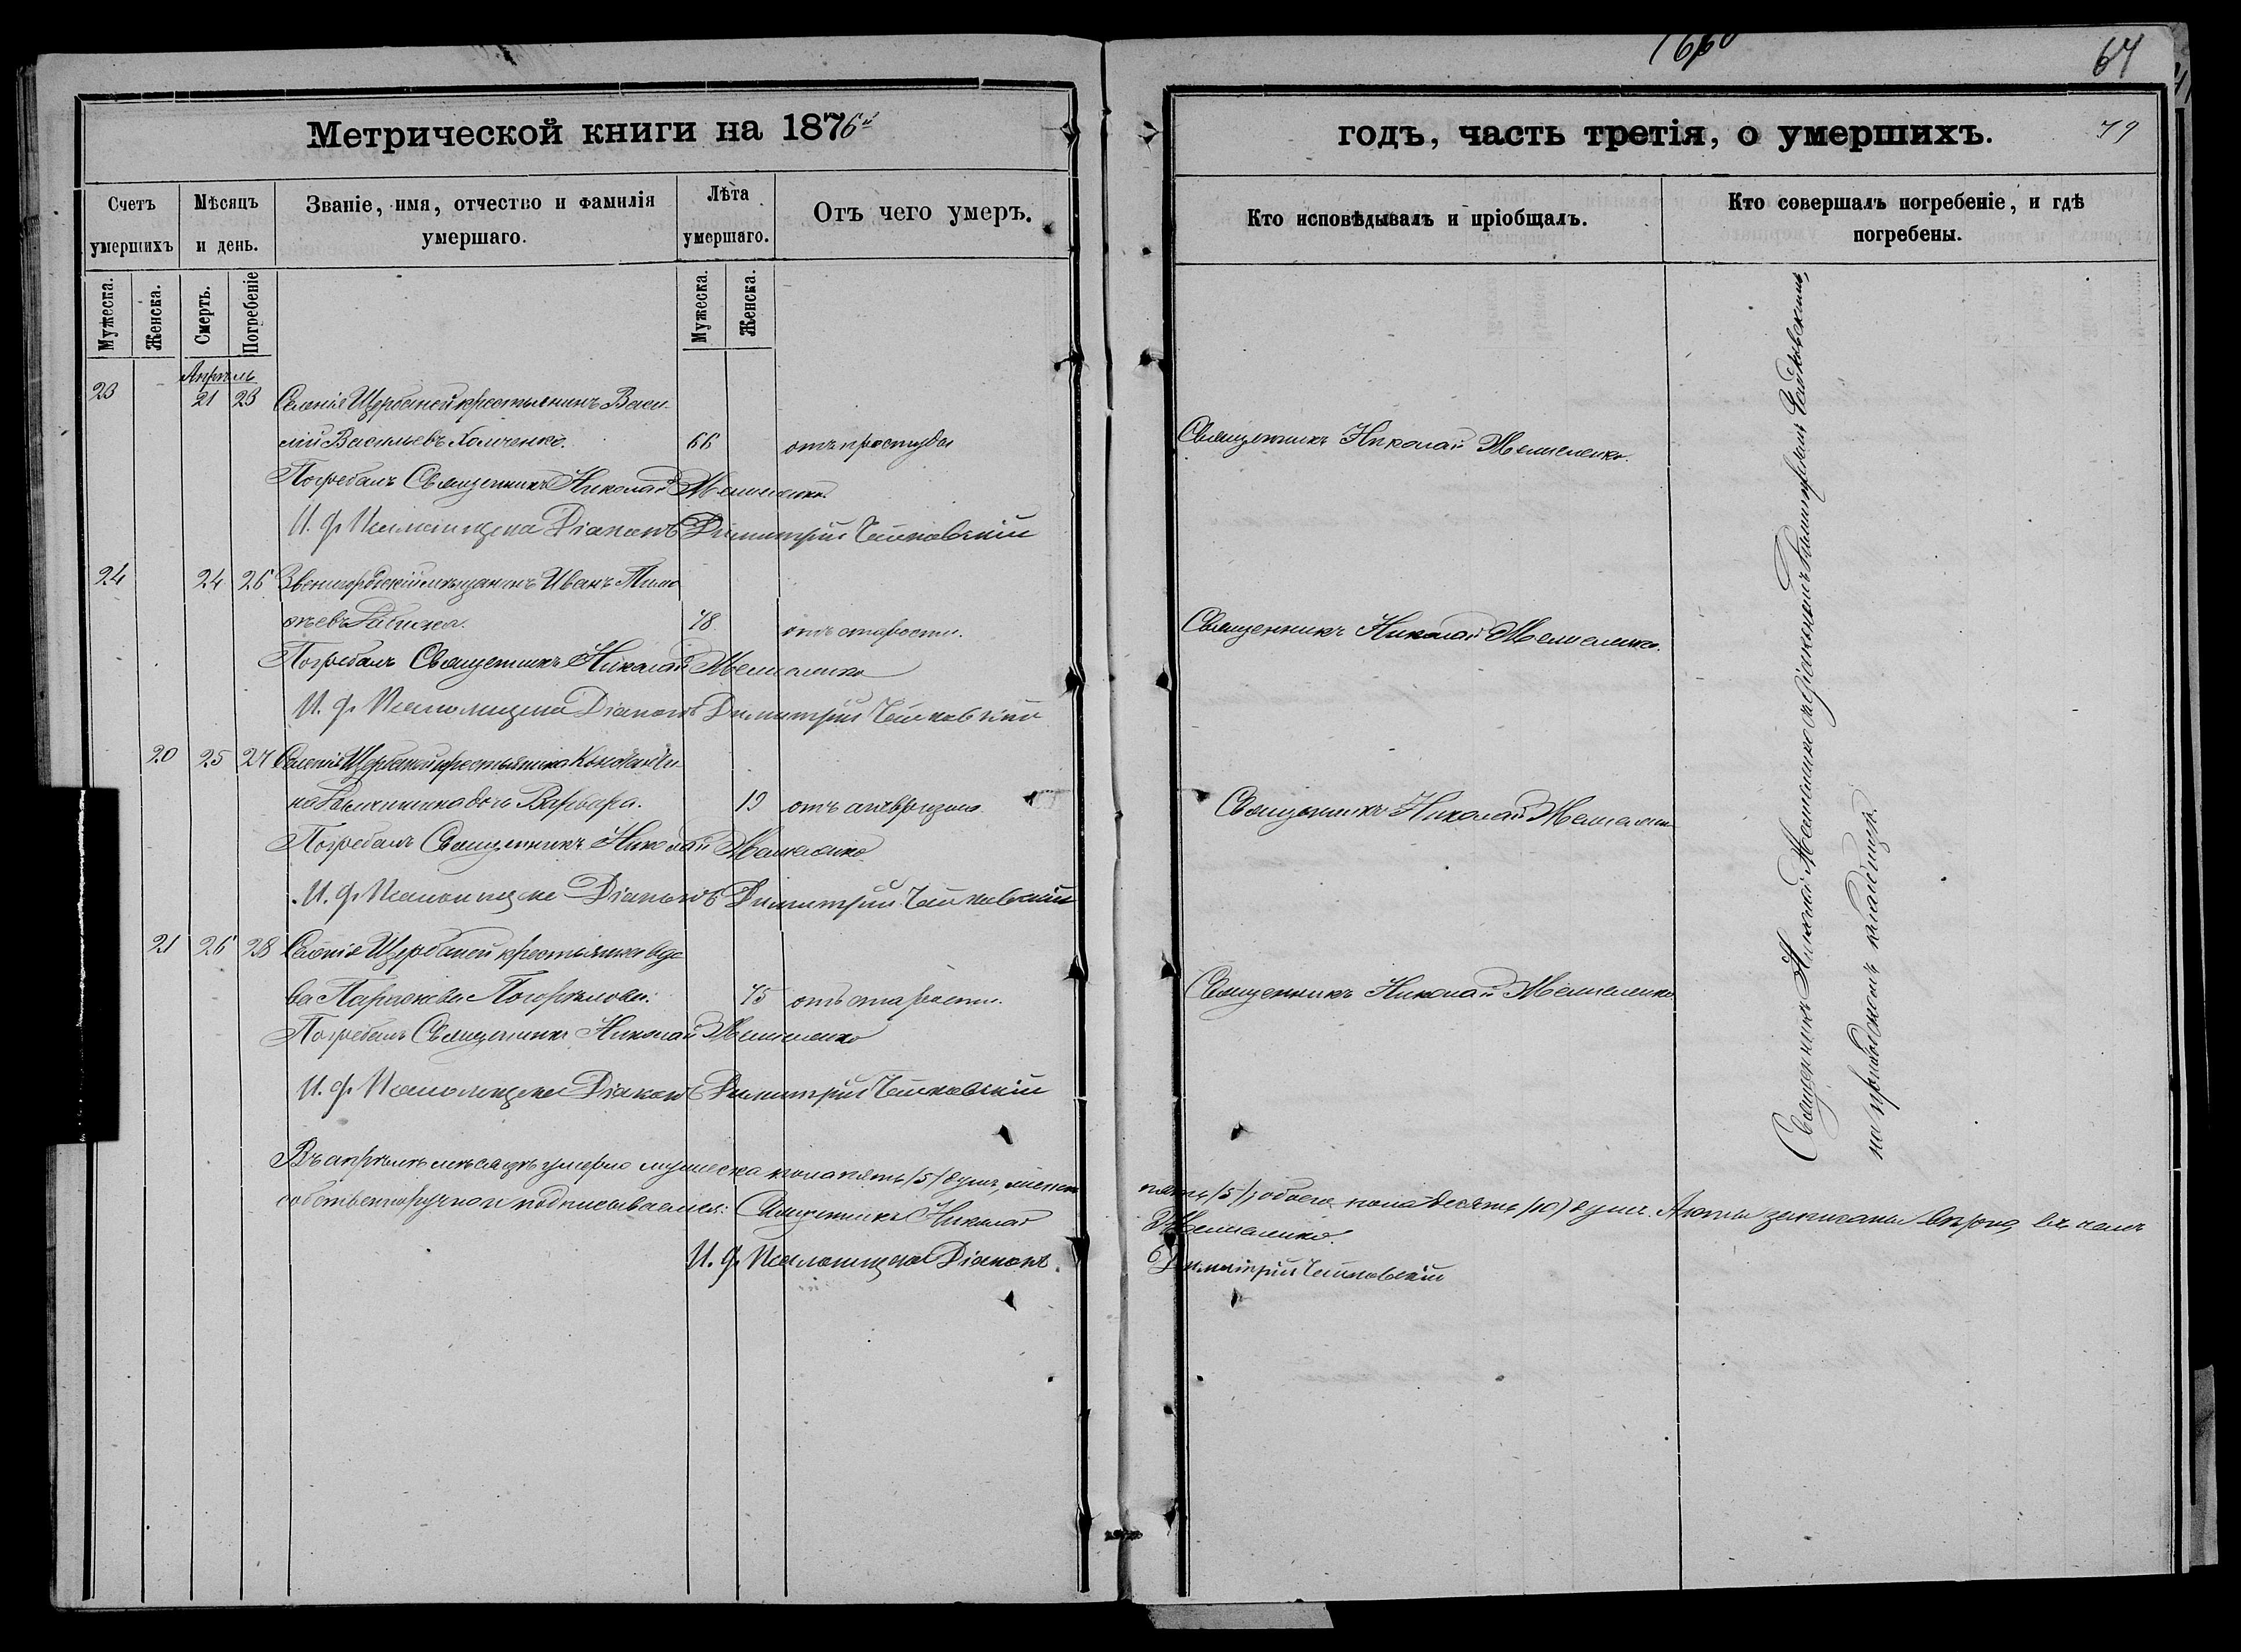 1660
64
79
Метрической книги на 1876й
годъ, часть третія, о умершихъ.
Счетъ умершихъ
Мѣсяцъ и день.
Званіе, имя, отчество и фамилія умершаго.
Лѣта умершаго.
Отъ чего умеръ.
Кто исповѣдывалъ и пріобщалъ.
Кто совершалъ погребеніе, и гдѣ погребены.
Мужеска.
Женска.
Смерть.
Погребеніе
Мужеска.
Женска.
Апрѣль
23 21 23 Селенія Щербаней крестьянинъ Васи-
лій Васильевъ 66 отъ простуды
Священникъ Николай Мельшенко.
Погребалъ Священникъ Николай
И. д. Псаломщика Діаконъ Димитрій Чайковскій
24 24 26 мѣщанинъ Иванъ
78 отъ старости.
Священникъ Николай
Погребалъ Священникъ Николай
И. д. Псаломщика Діаконъ Димитрій Чайковскій
20 25 27 Селенія Щербаней крестьянина Константи-
на дочь Варвара. 19 отъ
Священникъ Николай
Погребалъ Священникъ Николай
И. д. Псаломщика Діаконъ Димитрій Чайковскій
21 26 28 Селенія Щербаней крестьянка вдо
ва Параскева Погорѣлова. 75 отъ старости.
Священникъ Николай
Погребалъ Священникъ Николай
И. д. Псаломщика Діаконъ Димитрій Чайковскій
Въ апрѣлѣ мѣсяцѣ умерло мужеска пола пять /5/ душъ, женск
пять /5/, обоего пола десять /10/ душъ. А записаны вѣрно, въ чемъ
собственноручно и подписываемся: Священникъ Николай
И. д. Псаломщика Діаконъ
Димитрій Чайковскій
Священникъ Николай съ діакономъ Димитріемъ Чайковскимъ,
на приходскомъ кладбищѣ.